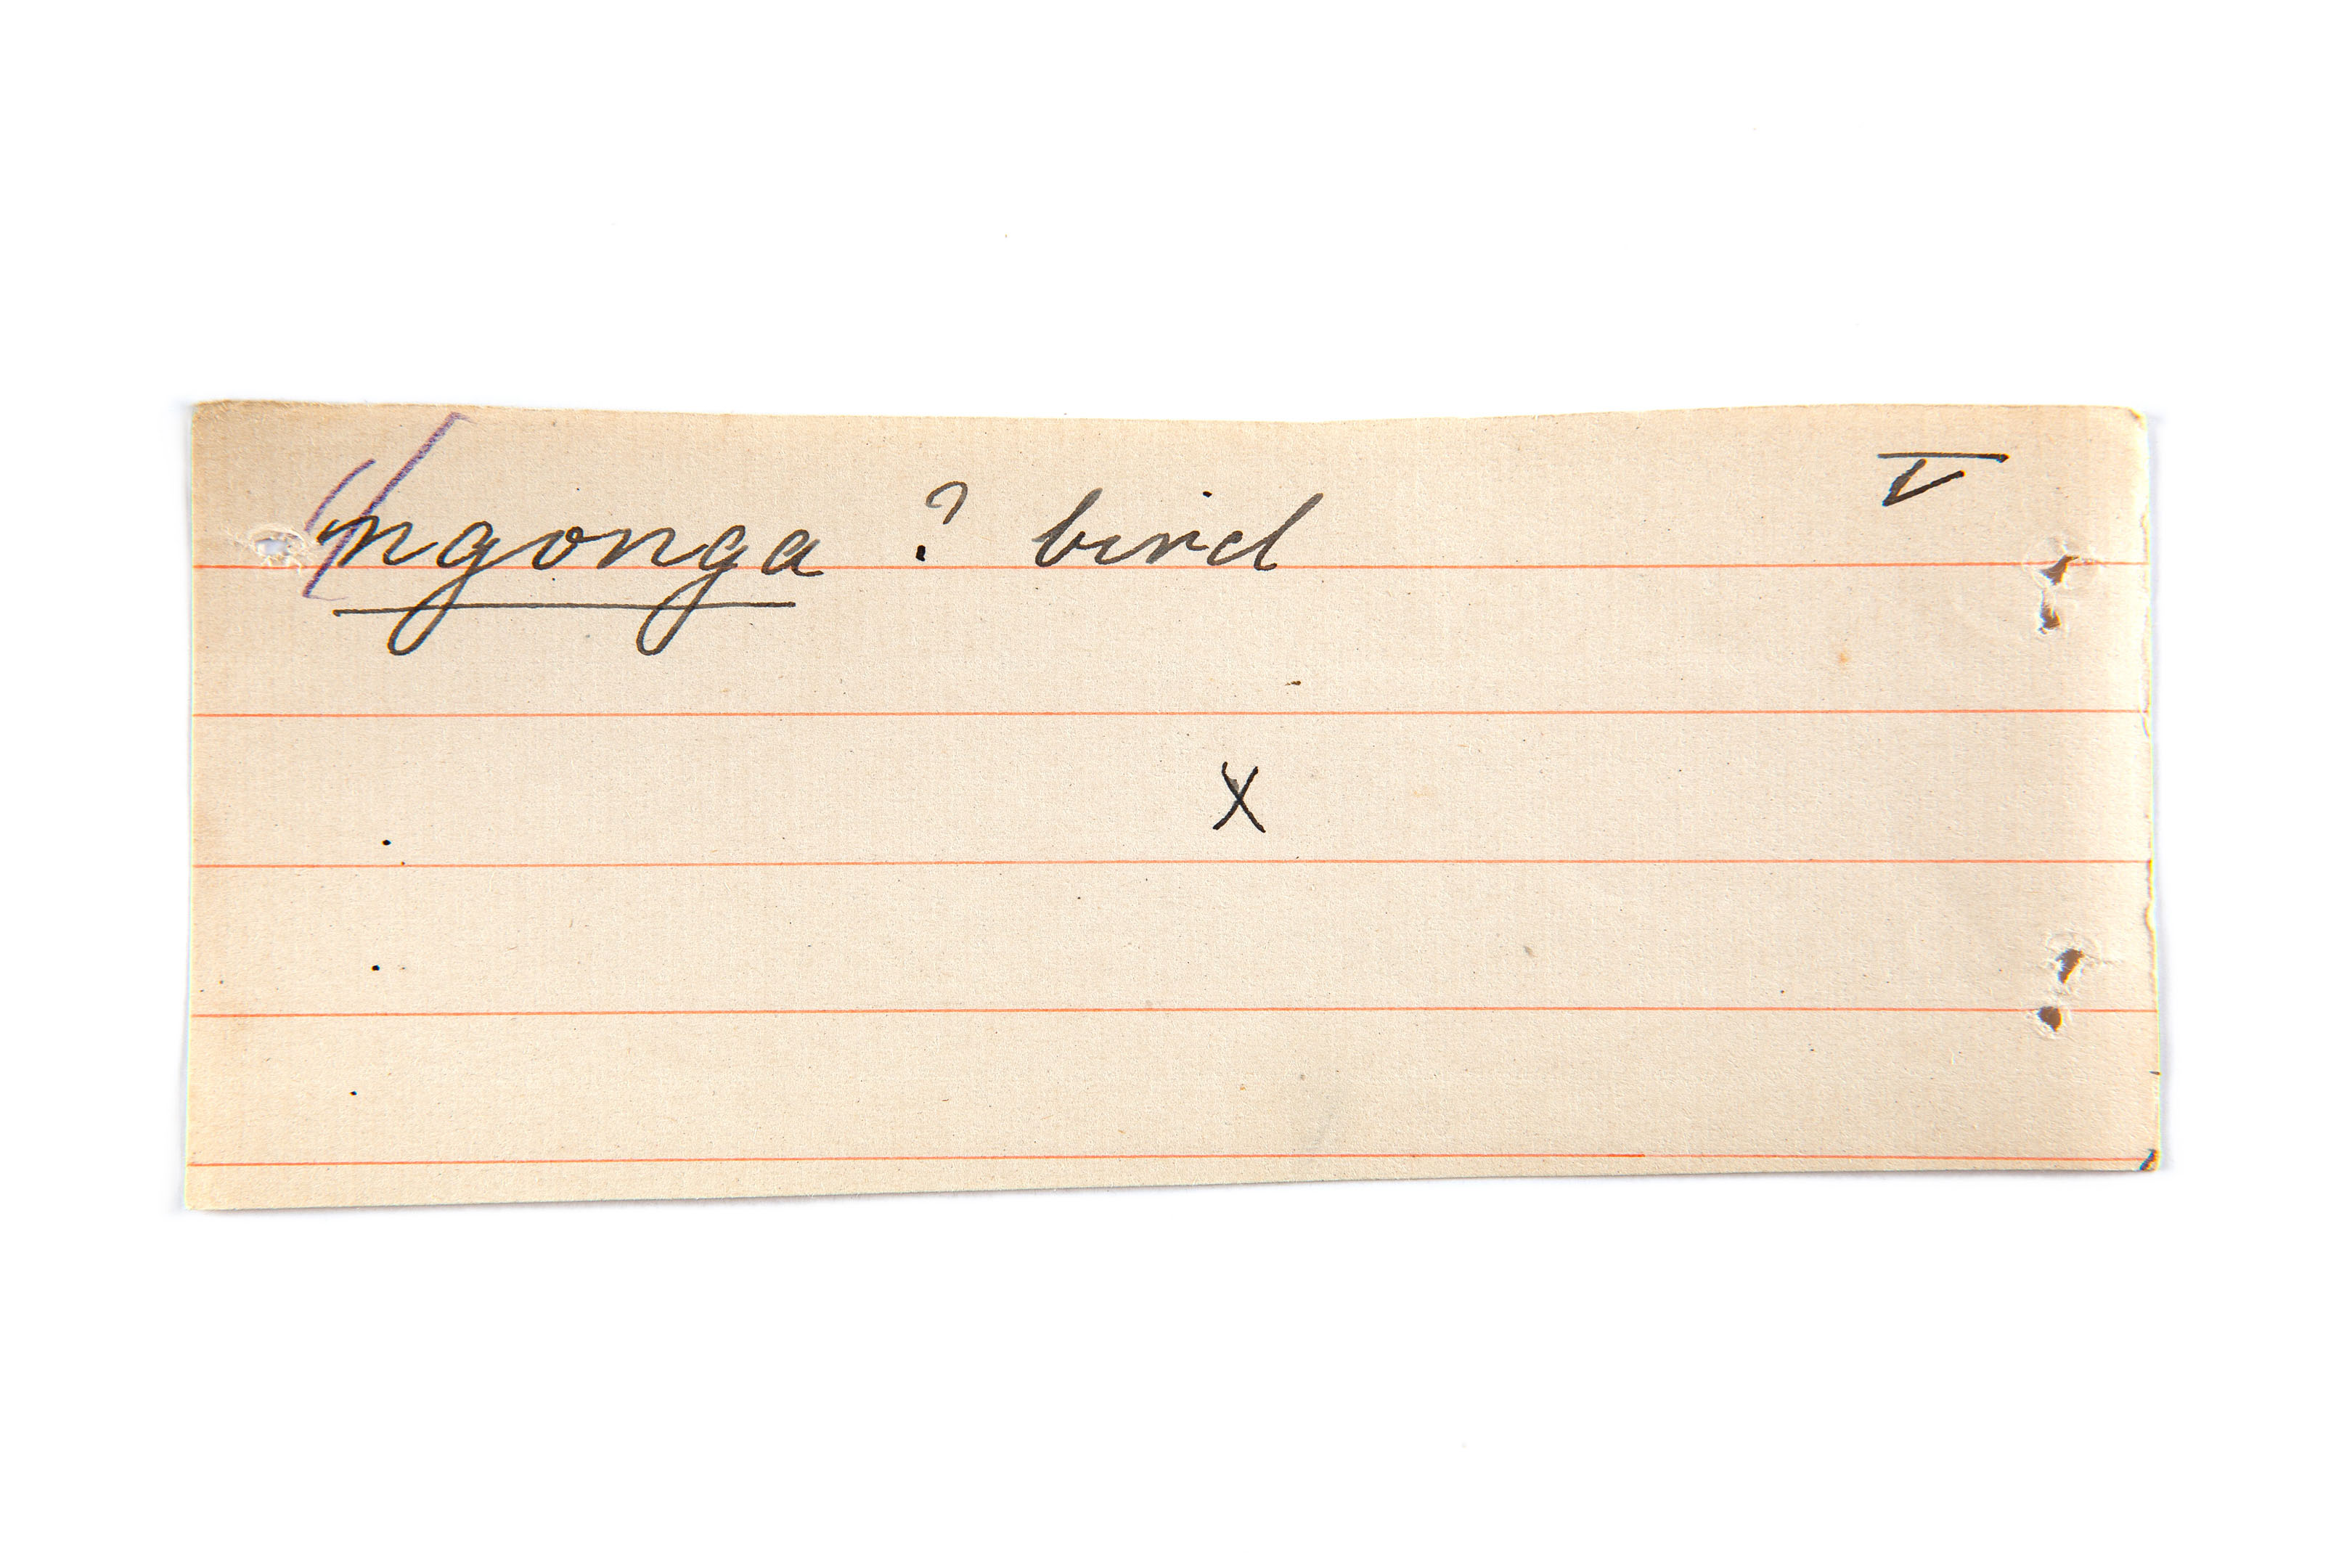 ngonga ? bird V
X